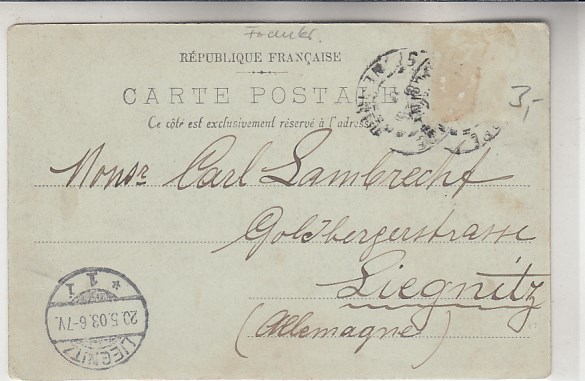 RÉPUBLIQUE FRANÇAISE
CARTE POSTALE
Ce côté est exclusivement réservé à l'adresse
3,-
Monsr Carl Lambrecht
Goldbergerstrasse
Liegnitz
(Allemagne)
* 1 1
20.5.03.6-7V.
LIEGNITZ